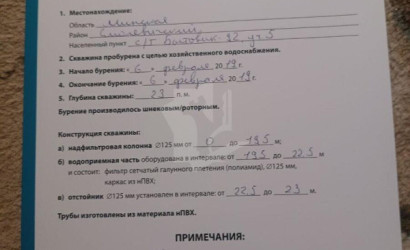 1. Местонахождение:
Область Минская
Район Смолевичский
Населённый пункт с/т Бытовик-92, уч. 5
2. Скважина пробурена с целью хозяйственного водоснабжения.
3. Начало бурения: « 6 » февраля 2019 г.
4. Окончание бурения: « 6 » февраля 2019 г.
5. Глубина скважины: 23 п. м.
Бурение производилось шнековым/роторным.
Конструкция скважины:
а) надфильтровая колонна ∅125 мм от 0 до 19.5 м;
б) водоприемная часть оборудована в интервале: от 19.5 до 22.5 м
и состоит: фильтр сетчатый галунного плетения (полиамид), ∅125 мм,
каркас из нПВХ;
в) отстойник ∅125 мм установлен в интервале: от 22.5 до 23 м.
Трубы изготовлены из материала нПВХ.
ПРИМЕЧАНИЯ: